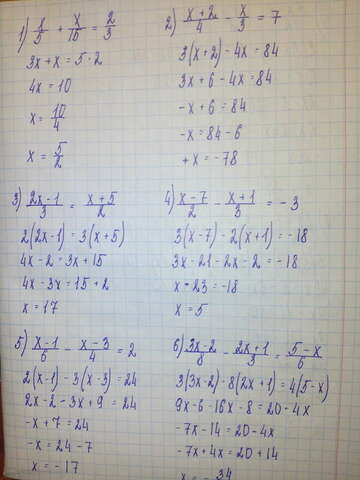 1) x/5 + x/15 = 2/3
3x + x = 5 · 2
4x = 10
x = 10/4
x = 5/2
2) (x + 2)/4 - x/3 = 7
3(x+2) - 4x = 84
3x + 6 - 4x = 84
-x + 6 = 84
-x = 84 - 6
+x = -78
3) (2x-1)/3 = (x+5)/2
2(2x-1) = 3(x+5)
4x - 2 = 3x + 15
4x - 3x = 15 + 2
x = 17
4) (x-7)/2 - (x+1)/3 = -3
3(x-7) - 2(x+1) = -18
3x - 21 - 2x - 2 = -18
x - 23 = -18
x = 5
5) (x-1)/6 - (x-3)/4 = 2
2(x-1) - 3(x-3) = 24
2x - 2 - 3x + 9 = 24
-x + 7 = 24
-x = 24 - 7
x = -17
6) (3x-2)/8 - (2x+1)/3 = (5-x)/6
3(3x-2) - 8(2x+1) = 4(5-x)
9x - 6 - 16x - 8 = 20 - 4x
-7x - 14 = 20 - 4x
-7x + 4x = 20 + 14
x = - 34